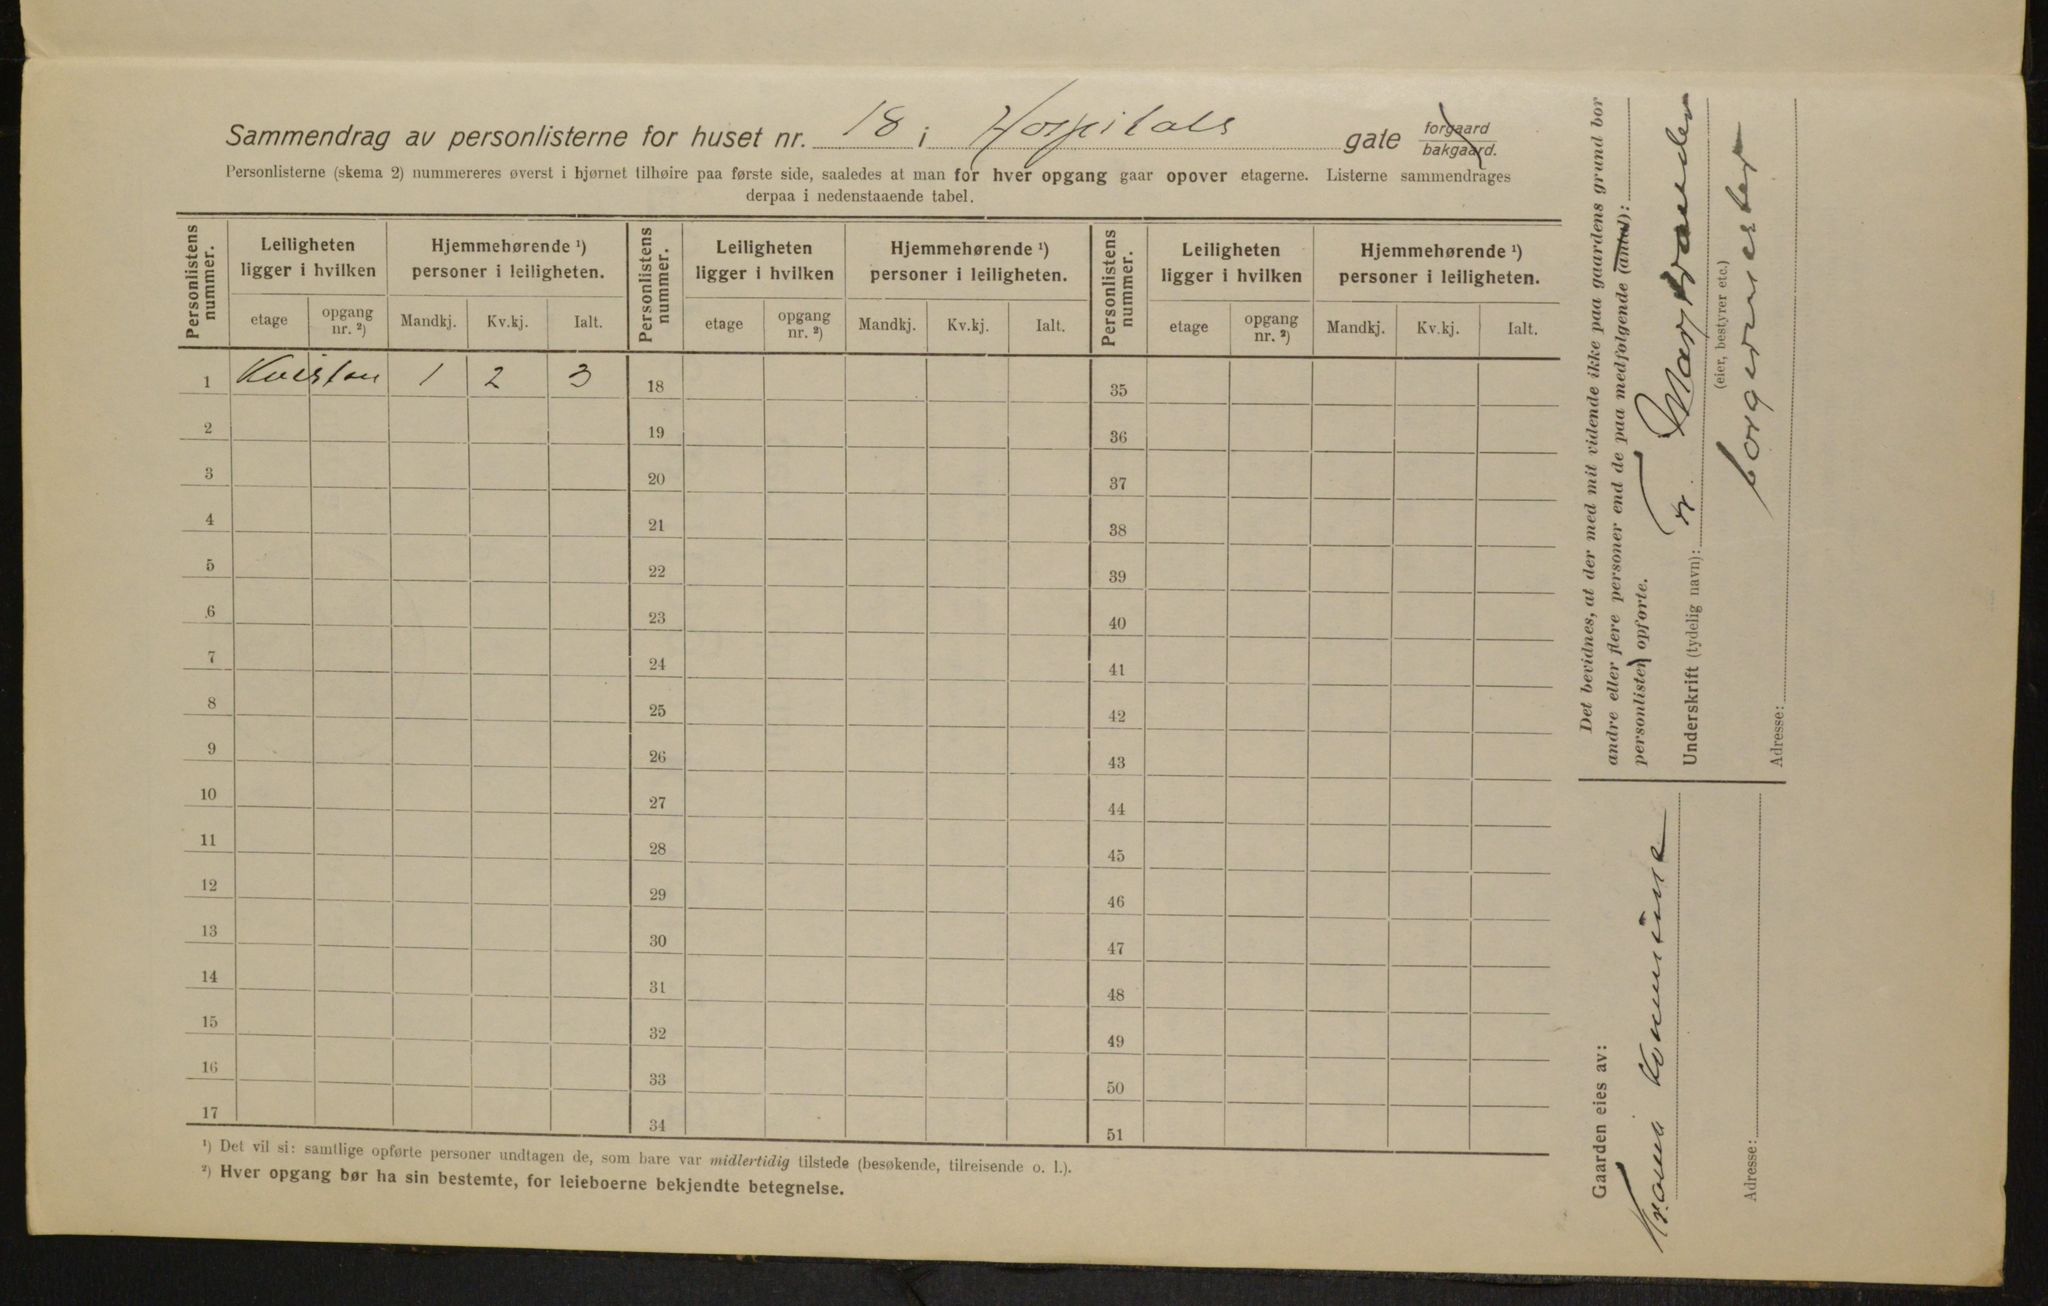 Sammendrag av personlisterne for huset nr. 18 i Hospitals gate forgaard bakgaard.
Personlisterne (skema 2) nummereres øverst i hjørnet tilhøire paa første side, saaledes at man for hver opgang gaar opover etagerne. Listerne sammendrages
derpaa i nedenstaaende tabel.
Personlistens nummer. Leiligheten ligger i hvilken Hjemmehørende ¹) personer i leiligheten. Personlistens nummer. Leiligheten ligger i hvilken Hjemmehørende ¹) personer i leiligheten. Personlistens nummer. Leiligheten ligger i hvilken Hjemmehørende ¹) personer i leiligheten.
etage opgang nr. ²) Mandkj. Kv.kj. Ialt. etage opgang nr. ²) Mandkj. Kv.kj. Ialt. etage opgang nr. ²) Mandkj. Kv.kj. Ialt.
1 Kvisten 1 2 3 18 35
2 19 36
3 20 37
4 21 38
5 22 39
6 23 40
7 24 41
8 25 42
9 26 43
10 27 44
11 28 45
12 29 46
13 30 47
14 31 48
15 32 49
16 33 50
17 34 51
¹) Det vil si: samtlige opførte personer undtagen de, som bare var midlertidig tilstede (besøkende, tilreisende o. l.).
²) Hver opgang bør ha sin bestemte, for leieboerne bekjendte betegnelse.
Det bevidnes, at der med mit vidende ikke paa gaardens grund bor
andre eller flere personer end de paa medfølgende (antal):
personlister opførte.
Underskrift (tydelig navn):
(eier, bestyrer etc.)
borgermester
Adresse:
Gaarden eies av:
Krania kommune
Adresse: